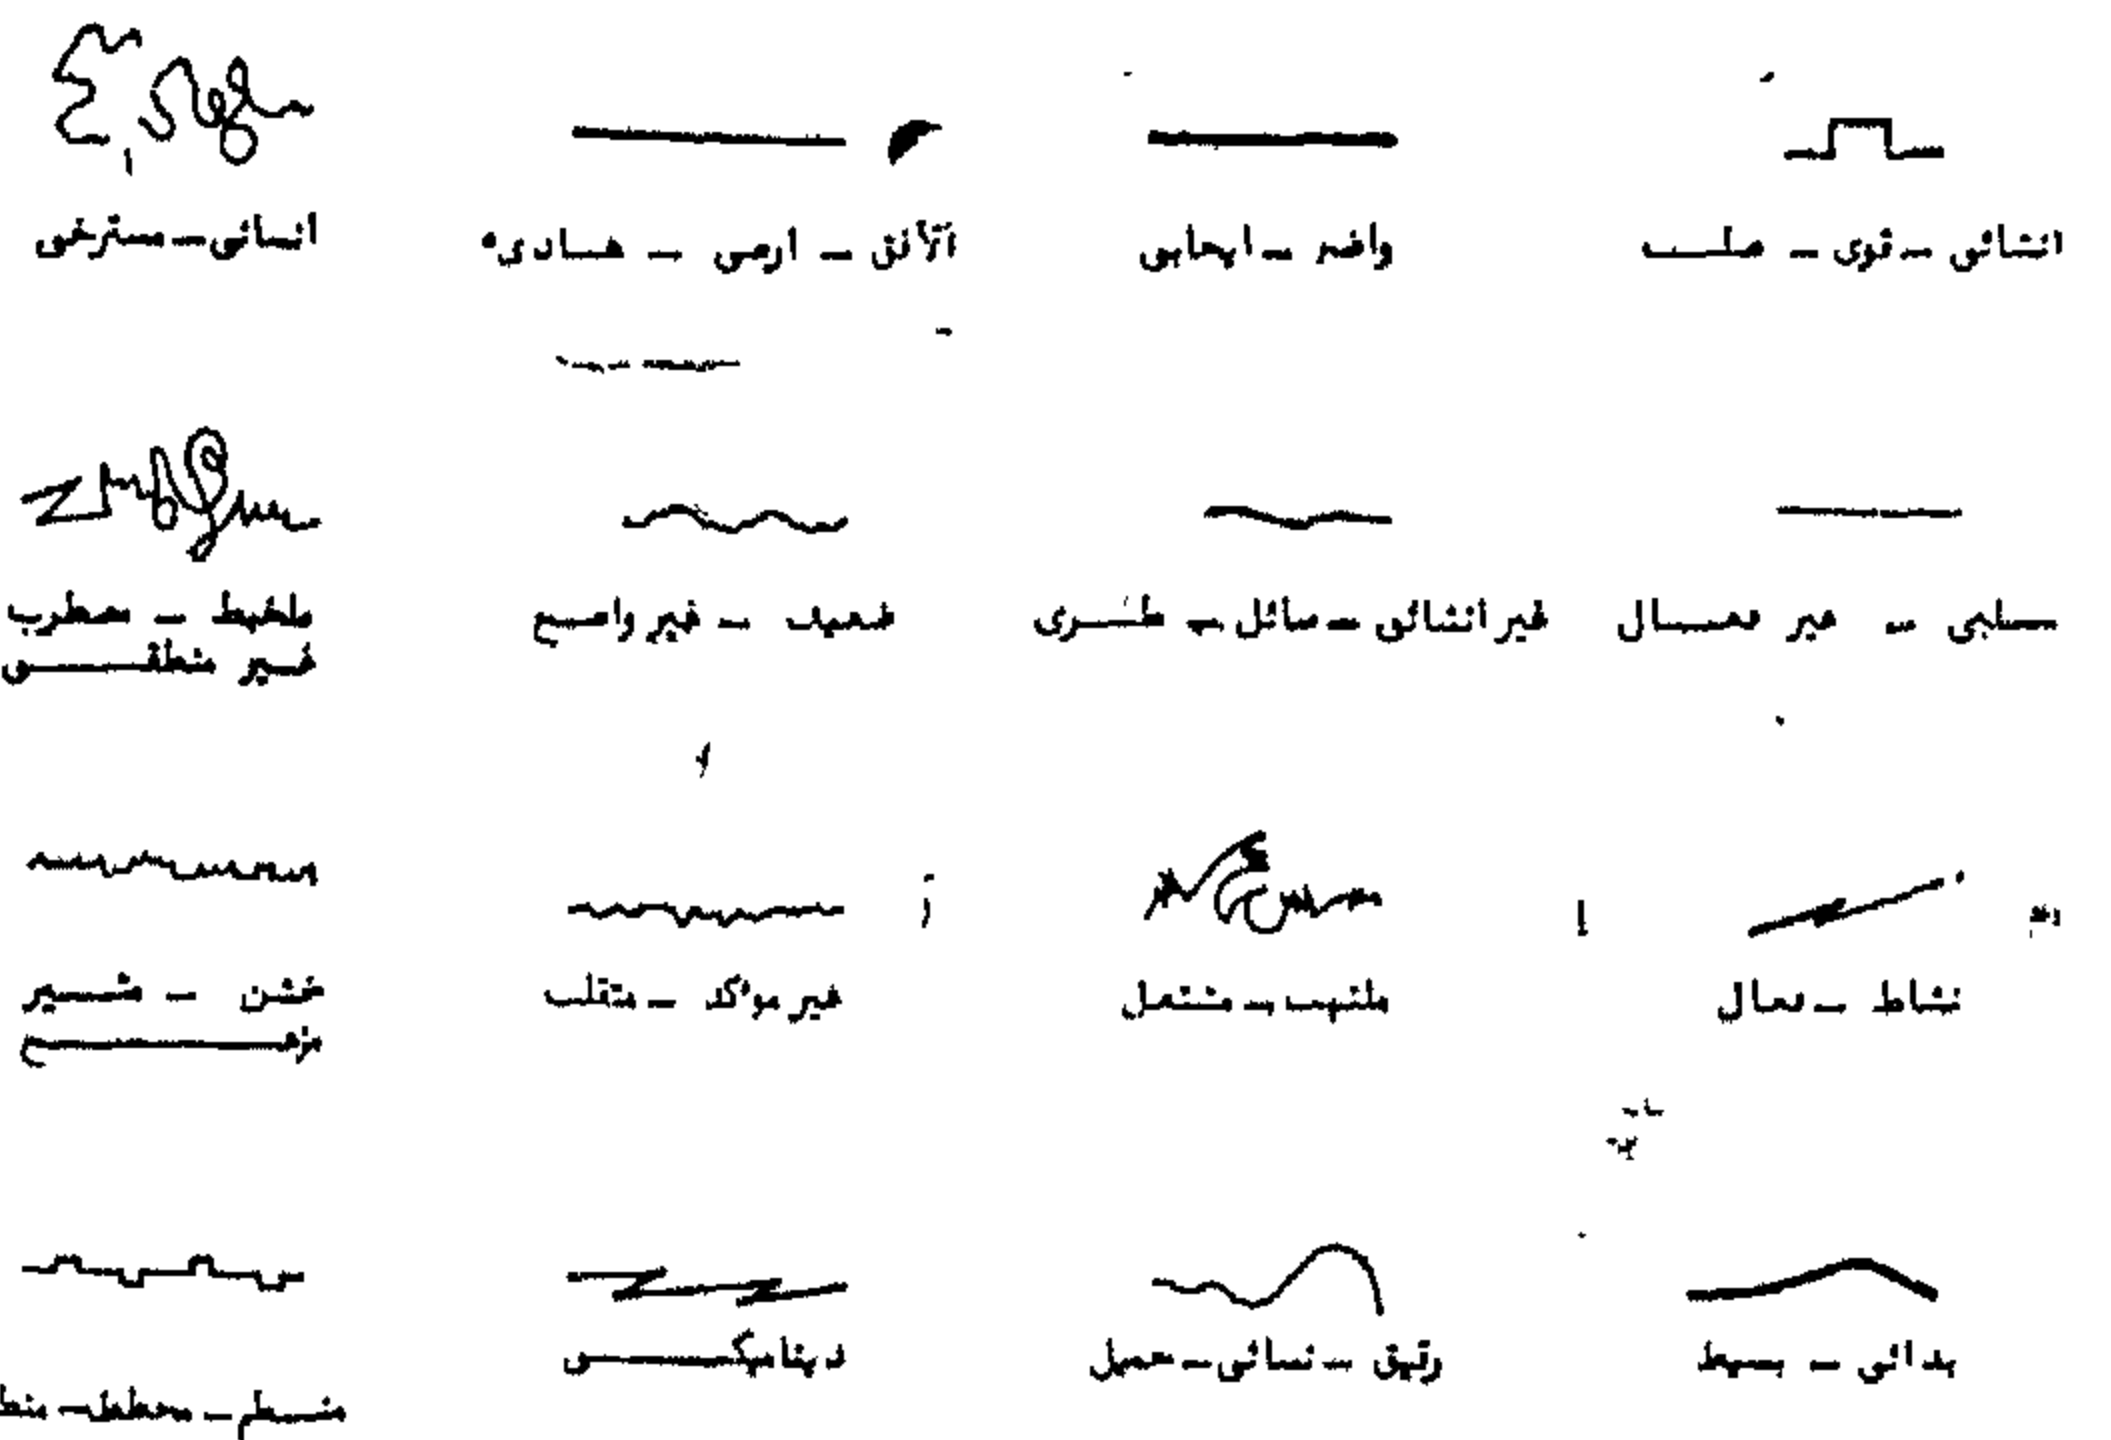 انشائى – قوى – صلب
واضح – ايجابى
الأفق – ارضى – هادىء
انسائى – مسترخى
سلبى – غير فعال
غير انشائى – مائل – طرى
ضعيف – غير واضح
ملخبط – مضطرب
غير منطقى
نشاط – فعال
ملتهب – مشتعل
غير موءكد – متقلب
خشن – مثير
مزعج
بدائى – بسيط
رقيق – نسائى – جميل
ديناميكى
منتظم – مخطط –